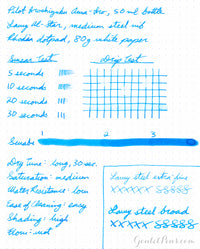 Pilot Iroshizuku Ama-iro, 50 ml bottle
Lamy Al-Star, medium steel nib
Rhodia dotpad, 80g white paper
Smear Test
Drip Test
5 seconds
10 seconds
20 seconds
30 seconds
Swabs
1
2
3
Dry Time: long, 30 sec.
Saturation: medium
Water Resistance: low
Ease of Cleaning: easy
Shading: high
Flow: wet
Lamy steel extra fine
XXXXXX
Lamy steel broad
XXXXX
GouletPens.com